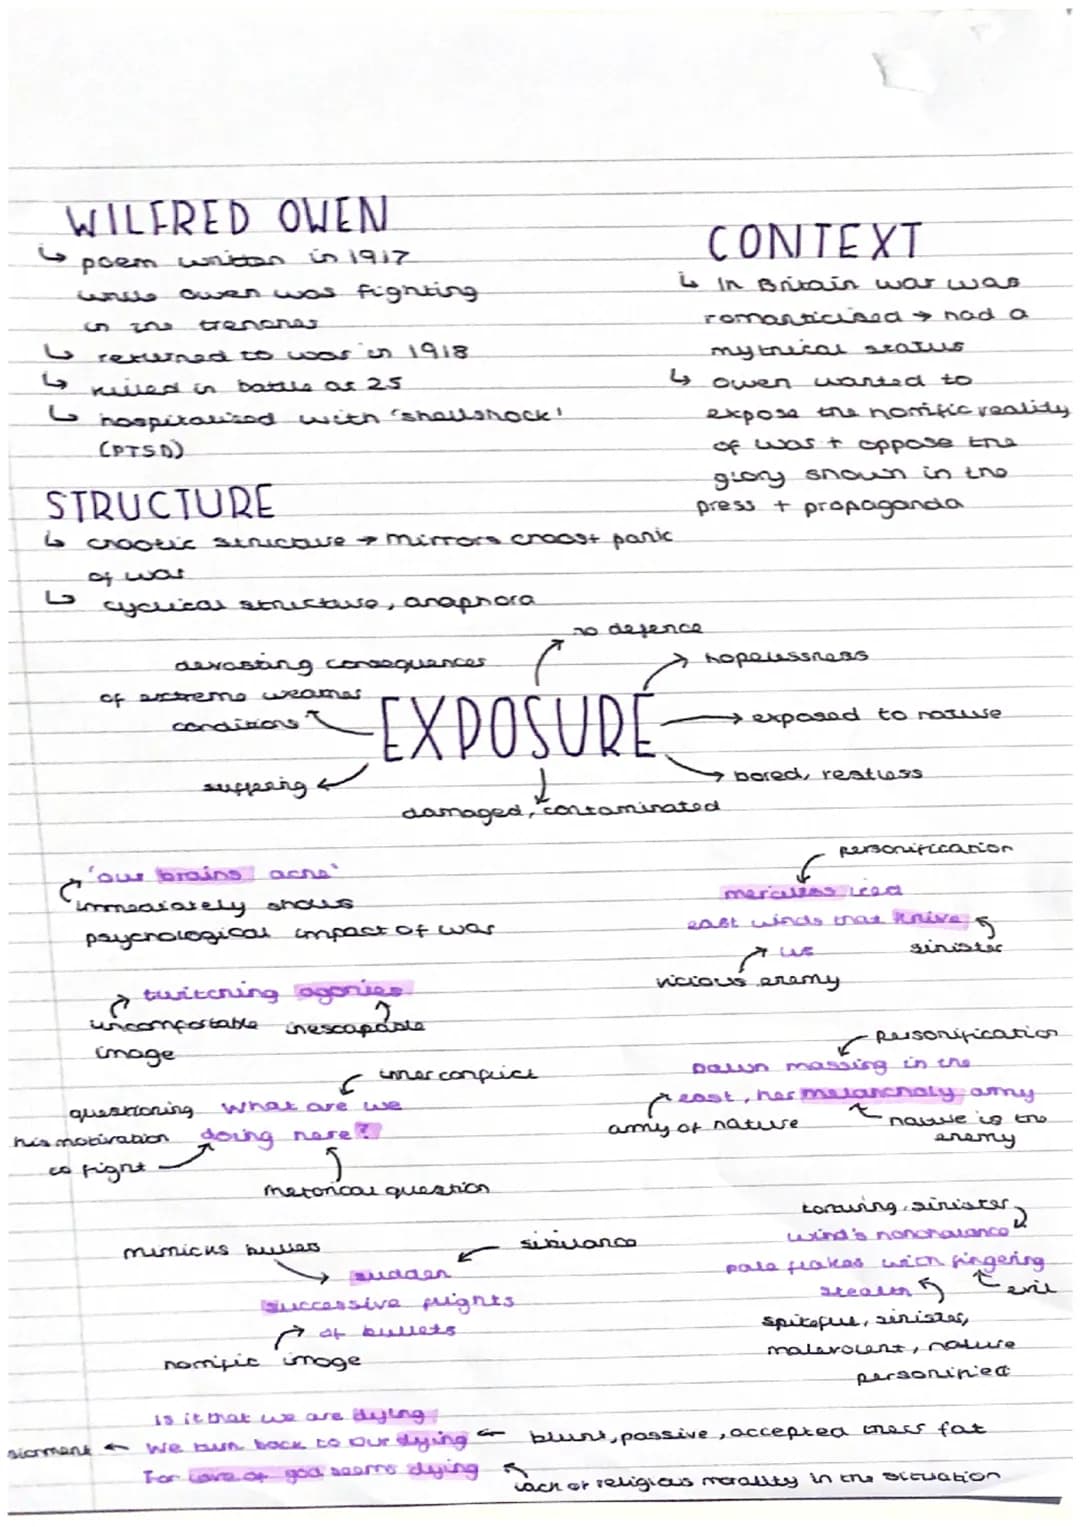 WILFRED OWEN
↳ poem written in 1917
while owen was fighting
in the trenches
↳ returned to war in 1918
↳ killed in battle at 25
↳ hospitalised with 'shellshock'
(PTSD)
CONTEXT
↳ In Britain war was
romanticised → had a
mythical status
↳ owen wanted to
expose the horrific reality
of war + oppose the
glory shown in the
press + propaganda
STRUCTURE
↳ chaotic structure → mirrors chaos + panic
of war
↳ cyclical structure, anaphora
EXPOSURE
no defence
hopelessness
exposed to nature
bored, restless
damaged, contaminated
suffering
devasting consequences
of extreme weather
conditions
'our brains ache'
immediately shows
psychological impact of war
personification
merciless iced
east winds that knive
us
sinister
vicious enemy
twitching agonies
uncomfortable inescapable
image
personification
Dawn massing in the
east, her melancholy army
army of nature
nature is the
enemy
inner conflict
questioning What are we
his motivation doing here?
to fight
rhetorical question
torturing, sinister
wind's nonchalance
pale flakes with fingering
stealth
evil
spiteful, sinister,
malevolent, nature
personified
mimicks bullets
sibilance
sudden
successive flights
of bullets
horrific image
Is it that we are dying
We turn back to our dying ← blunt, passive, accepted their fat
For love of god seems dying
lack of religious morality in the situation